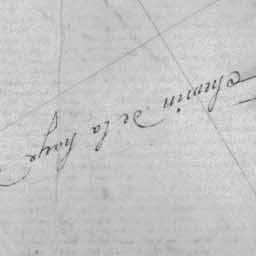 Chemin de la haye